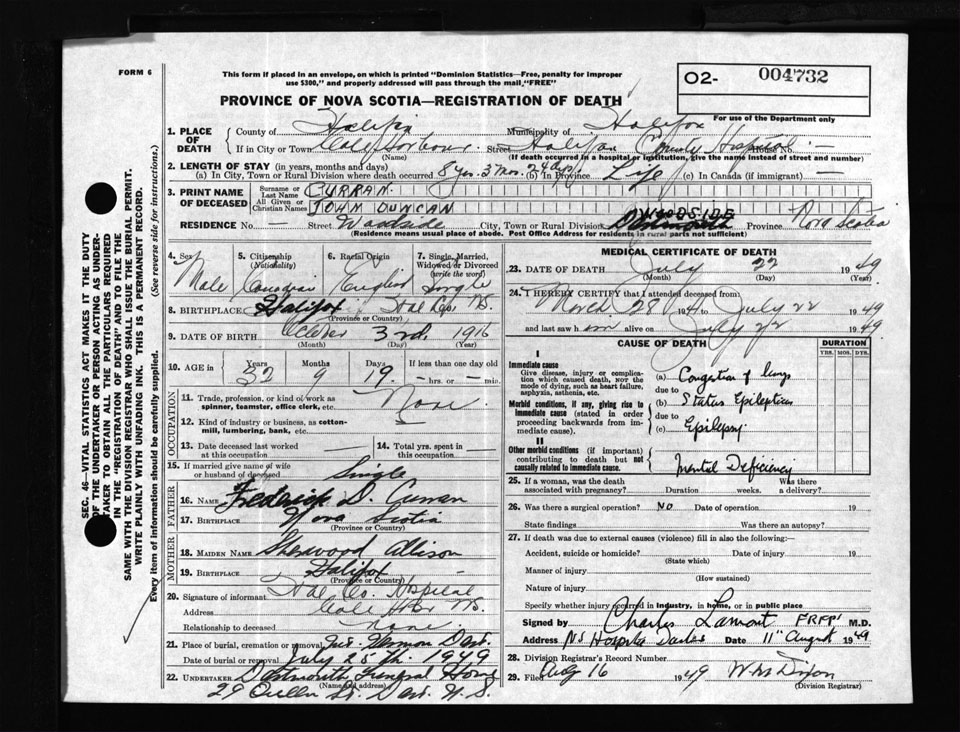 FORM 6
This form if placed in an envelope, on which is printed "Dominion Statistics—Free, penalty for improper
use $300," and properly addressed will pass through the mail, "FREE"
O2- 004732
For use of the Department only
PROVINCE OF NOVA SCOTIA—REGISTRATION OF DEATH
1. PLACE OF DEATH
County of Halifax Municipality of Halifax
If in City or Town Cole Harbour Street Halifax County Hospital No. —
(Name) (If death occurred in a hospital or institution, give the name instead of street and number)
2. LENGTH OF STAY (in years, months and days)
(a) In City, Town or Rural Division where death occurred 8 yrs. 3 mos. 24 dys (b) In Province Life (c) In Canada (if immigrant) —
3. PRINT NAME OF DECEASED
Surname or Last Name CURRAN
All Given or Christian Names JOHN DUNCAN
RESIDENCE No. — Street Woodside City, Town or Rural Division WOODSIDE Dartmouth Province Nova Scotia
(Residence means usual place of abode. Post Office Address for residents in rural parts not sufficient)
4. Sex 5. Citizenship (Nationality) 6. Racial Origin 7. Single, Married, Widowed or Divorced (write the word)
Male Canadian English Single
8. BIRTHPLACE Halifax Hal Co. N.S.
(Province or Country)
9. DATE OF BIRTH October 3rd 1916
(Month) (Day) (Year)
10. AGE in Years Months Days If less than one day old
32 9 19 — hrs. or — min.
OCCUPATION
11. Trade, profession, or kind of work as spinner, teamster, office clerk, etc. None
12. Kind of industry or business, as cotton-mill, lumbering, bank, etc. —
13. Date deceased last worked at this occupation 14. Total yrs. spent in this occupation
15. If married give name of wife or husband of deceased Single
FATHER
16. NAME Frederick D. Curran
17. BIRTHPLACE Nova Scotia
(Province or Country)
MOTHER
18. MAIDEN NAME Sherwood Allison
19. BIRTHPLACE Halifax
(Province or Country)
20. Signature of informant Hal Co. Hospital
Address Cole Hbr N.S.
Relationship to deceased none
21. Place of burial, cremation or removal Mt. Hermon Dart.
Date of burial or removal July 25th 1949
22. UNDERTAKER Dartmouth Funeral Home
(Name and address)
29 Queen St. Dart. N.S.
MEDICAL CERTIFICATE OF DEATH
23. DATE OF DEATH July 22 1949
(Month) (Day) (Year)
24. I HEREBY CERTIFY that I attended deceased from
March 28 1941 to July 22 1949
and last saw him alive on July 22 1949
CAUSE OF DEATH DURATION
YRS. MOS. DYS.
I
Immediate cause
Give disease, injury or complication which caused death, not the mode of dying, such as heart failure, asphyxia, asthenia, etc.
(a) Congestion of lungs
due to
Morbid conditions, if any, giving rise to immediate cause (stated in order proceeding backwards from immediate cause).
(b) Status Epilepticus
due to
(c) Epilepsy
II
Other morbid conditions (if important) contributing to death but not causally related to immediate cause.
Mental Deficiency
25. If a woman, was the death associated with pregnancy? Duration weeks. Was there a delivery?
26. Was there a surgical operation? NO Date of operation 19
State findings Was there an autopsy?
27. If death was due to external causes (violence) fill in also the following:—
Accident, suicide or homicide? Date of injury 19
(State which)
Manner of injury
(How sustained)
Nature of injury
Specify whether injury occurred in industry, in home, or in public place
Signed by Charles Lamont FRFPS M.D.
Address NS Hospital Date 11th August 1949
28. Division Registrar's Record Number
29. Filed Aug 16 1949 W M Dixon
(Division Registrar)
SEC. 46—VITAL STATISTICS ACT MAKES IT THE DUTY
OF THE UNDERTAKER OR PERSON ACTING AS UNDER-
TAKER TO OBTAIN ALL THE PARTICULARS REQUIRED
IN THE "REGISTRATION OF DEATH" AND TO FILE THE
SAME WITH THE DIVISION REGISTRAR WHO SHALL ISSUE THE BURIAL PERMIT.
WRITE PLAINLY WITH UNFADING INK. THIS IS A PERMANENT RECORD.
Every item of information should be carefully supplied. (See reverse side for instructions.)